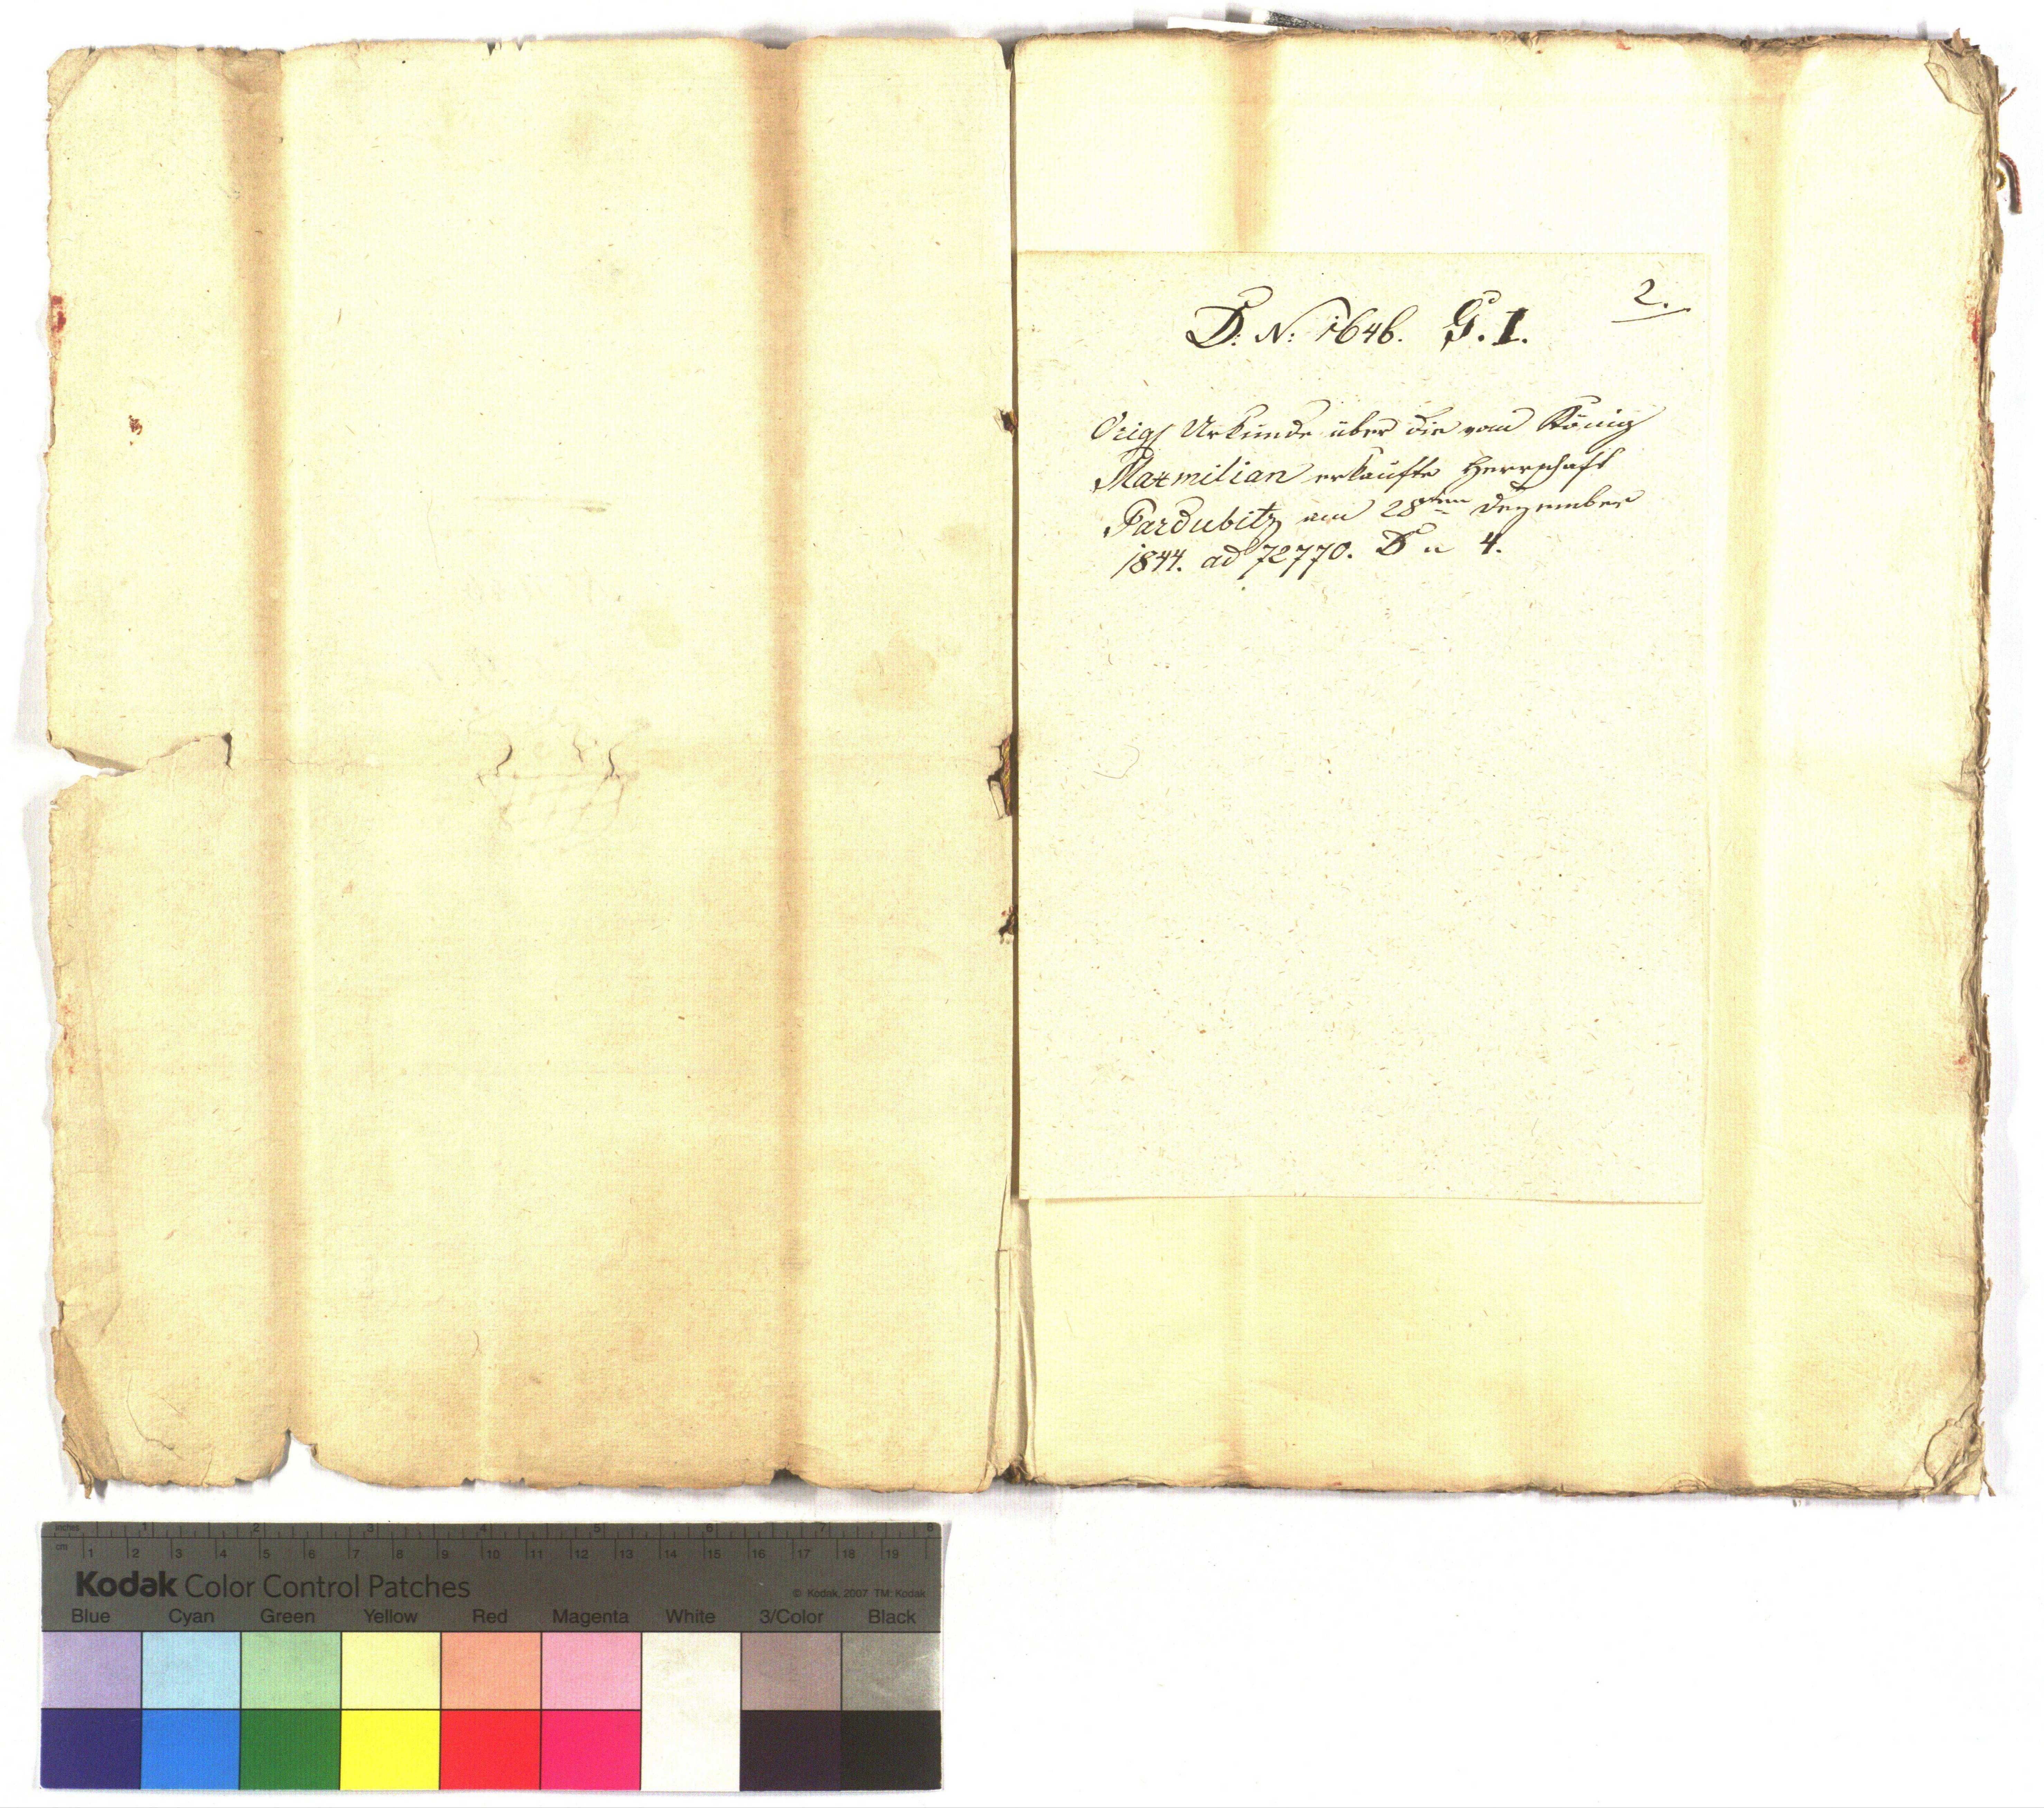 2.
D. N: 1646. G. I.
Orig Urkunde über die vom König
Maxmilian erkaufte Herrschaft
Pardubitz am 28ten Dezember
1844. ad 72770. D 4.
inches 1 2 3 4 5 6 7 8
cm 1 2 3 4 5 6 7 8 9 10 11 12 13 14 15 16 17 18 19
Kodak Color Control Patches © Kodak, 2007 TM: Kodak
Blue Cyan Green Yellow Red Magenta White 3/Color Black